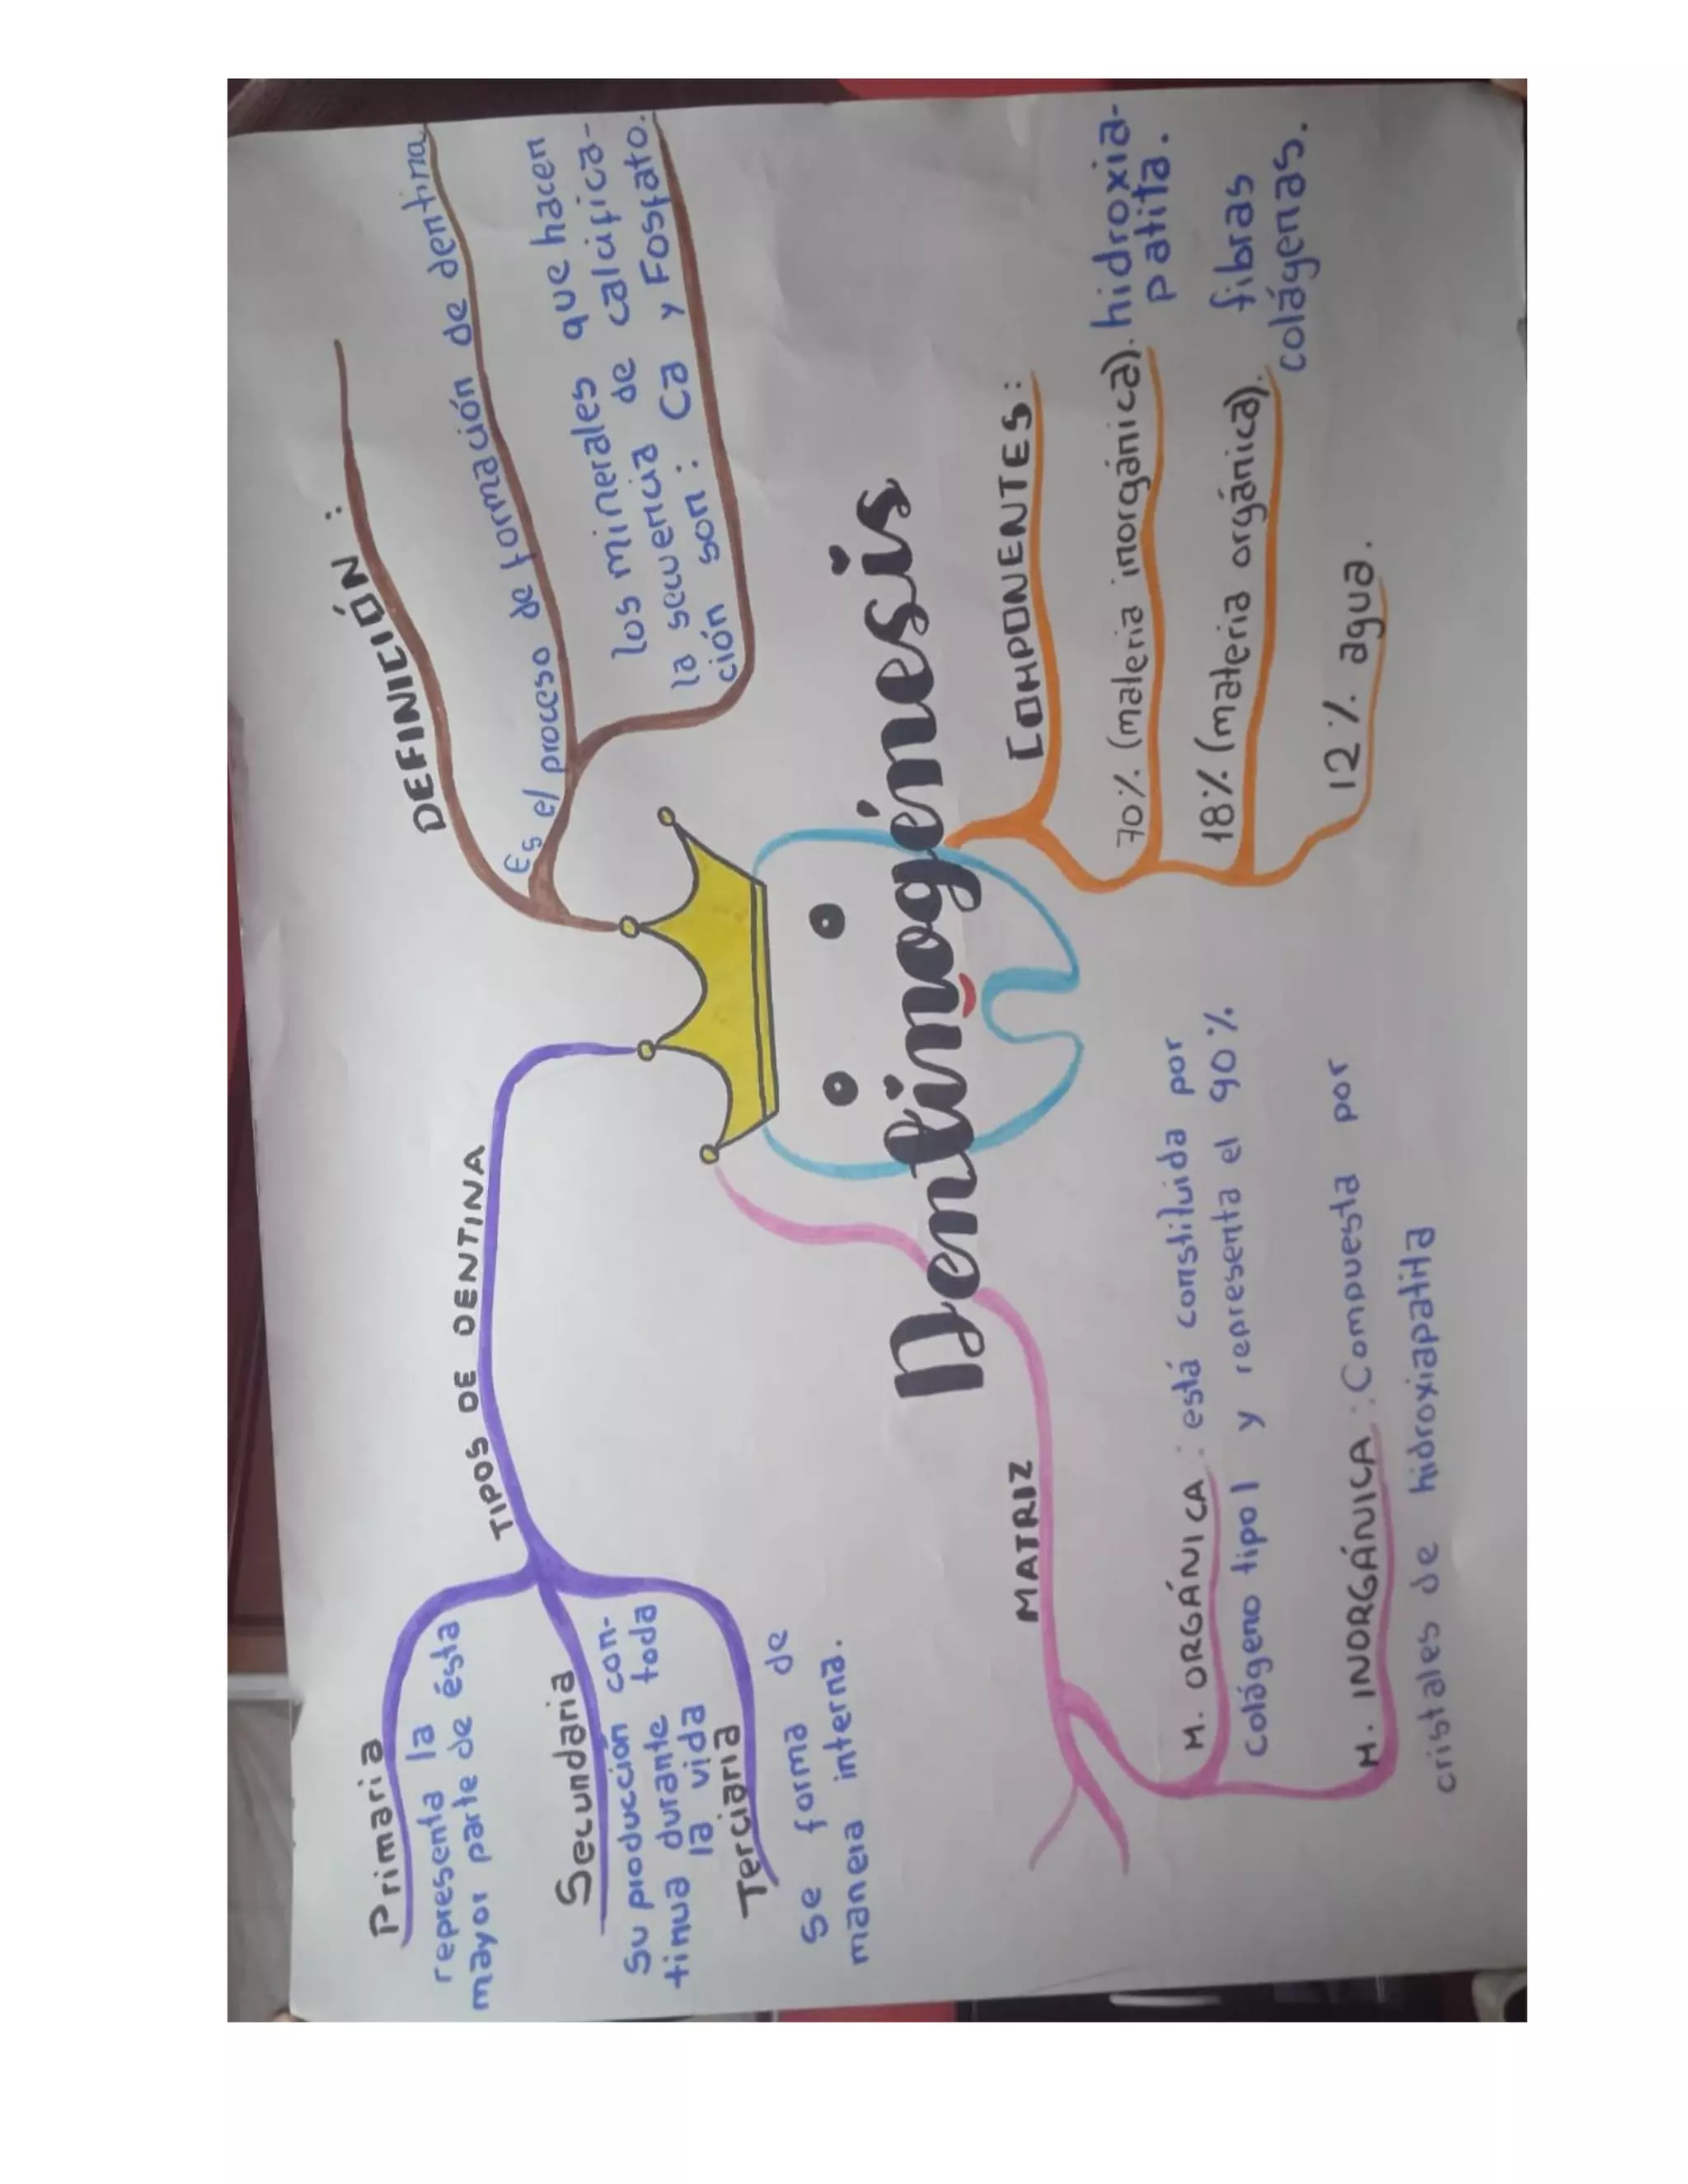 Dentinogénesis
DEFINICIÓN :
Es el proceso de formación de dentina
los minerales que hacen
la secuencia de calcifica-
ción son : Ca y Fosfato.
COMPONENTES :
70% (materia inorgánica). hidroxia-
patita.
18% (materia orgánica). fibras
colágenas.
12% agua.
TIPOS DE DENTINA
Primaria
representa la
mayor parte de ésta
Secundaria
Su producción con-
tinua durante toda
la vida
Terciaria
Se forma de
manera interna.
MATRIZ
M. ORGÁNICA : está constituida por
Colágeno tipo I y representa el 90%
M. INORGÁNICA : Compuesta por
cristales de hidroxiapatita